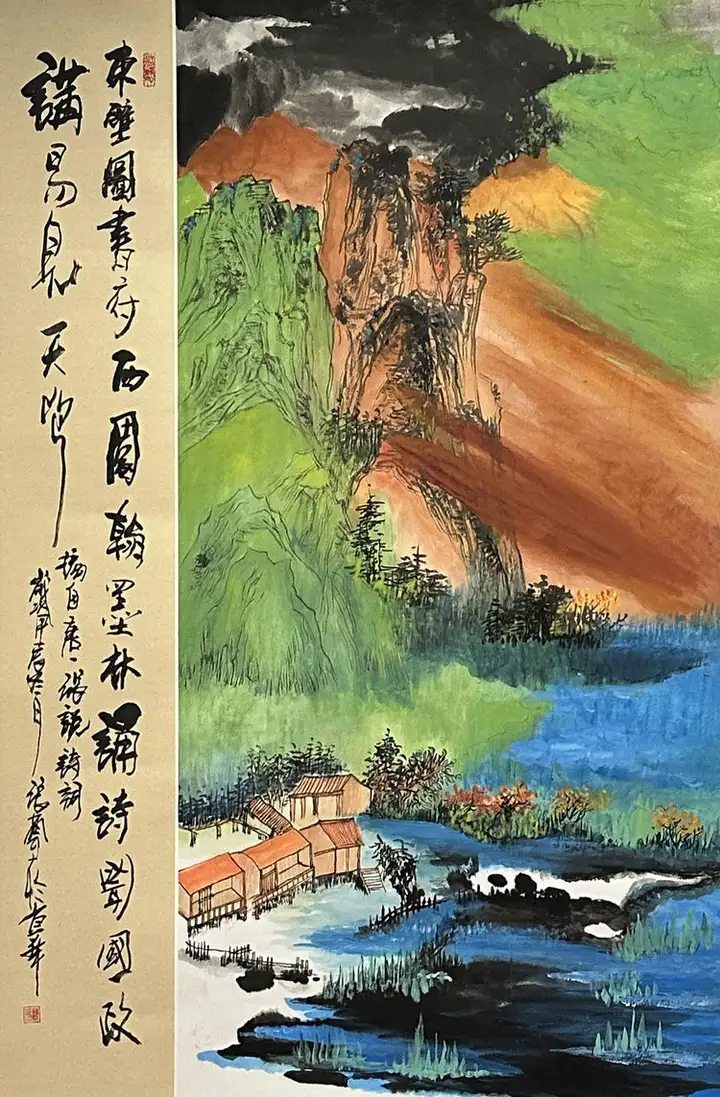 東壁圖書府西園翰墨林誦詩聞國政
講易見天心
摘自唐一張說詩詞
歲甲辰冬月張於